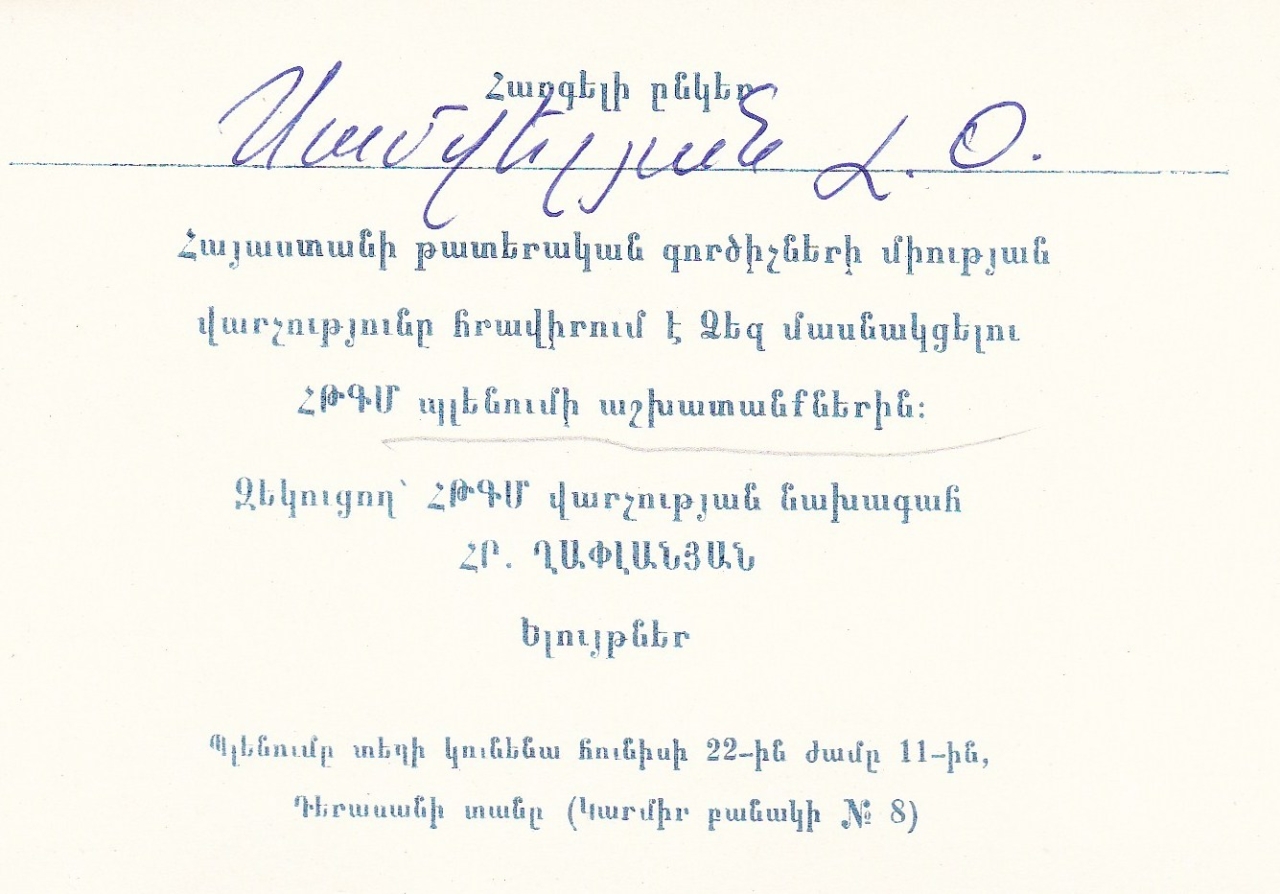 Հարգելի ընկեր
Սամվելյան Հ. Օ.
Հայաստանի թատերական գործիչների միության
վարչությունը հրավիրում է Ձեզ մասնակցելու
ՀԹԳՄ պլենումի աշխատանքներին։
Զեկուցող՝ ՀԹԳՄ վարչության նախագահ
ՀՐ. ՂԱՓԼԱՆՅԱՆ
Ելույթներ
Պլենումը տեղի կունենա հունիսի 22-ին ժամը 11-ին,
Դերասանի տանը (Կարմիր բանակի № 8)